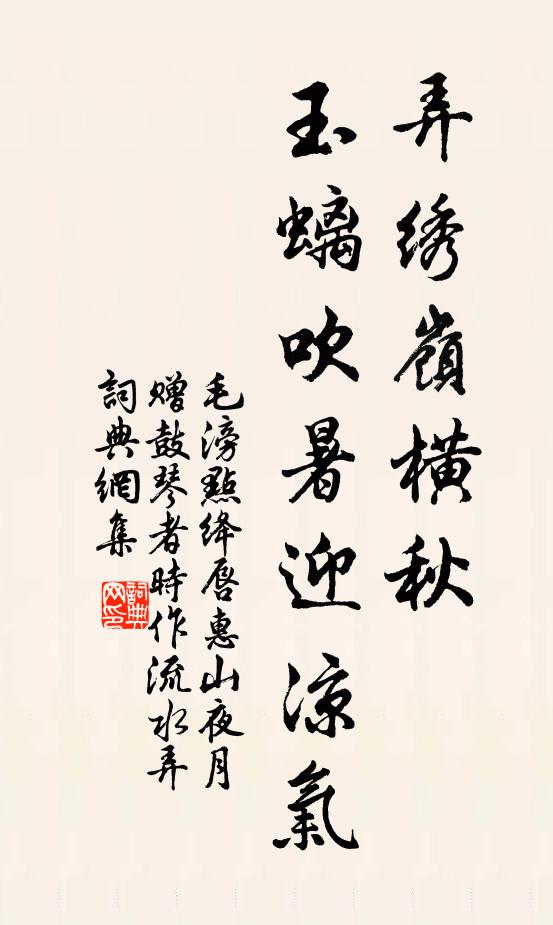 弄绣嶺橫秋
玉螭吹暑迎涼氣
毛滂點绛唇惠山夜月
赠鼓琴者時作流水弄
詞典網集
詞典网印